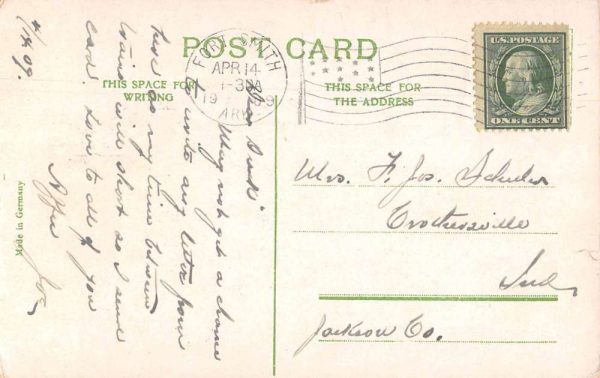 POST CARD
THIS SPACE FOR
WRITING
THIS SPACE FOR
THE ADDRESS
FORT SMITH
APR 14
1909
ARK.
U.S. POSTAGE
ONE CENT
Mrs. F. Jos. Schuler
Crothersville
Ind.
Jackson Co.
Made in Germany
4/13/09.
May not get a chance
to write any letter from
here as my time between
trains will short so I send
card. Love to all of you
Joe